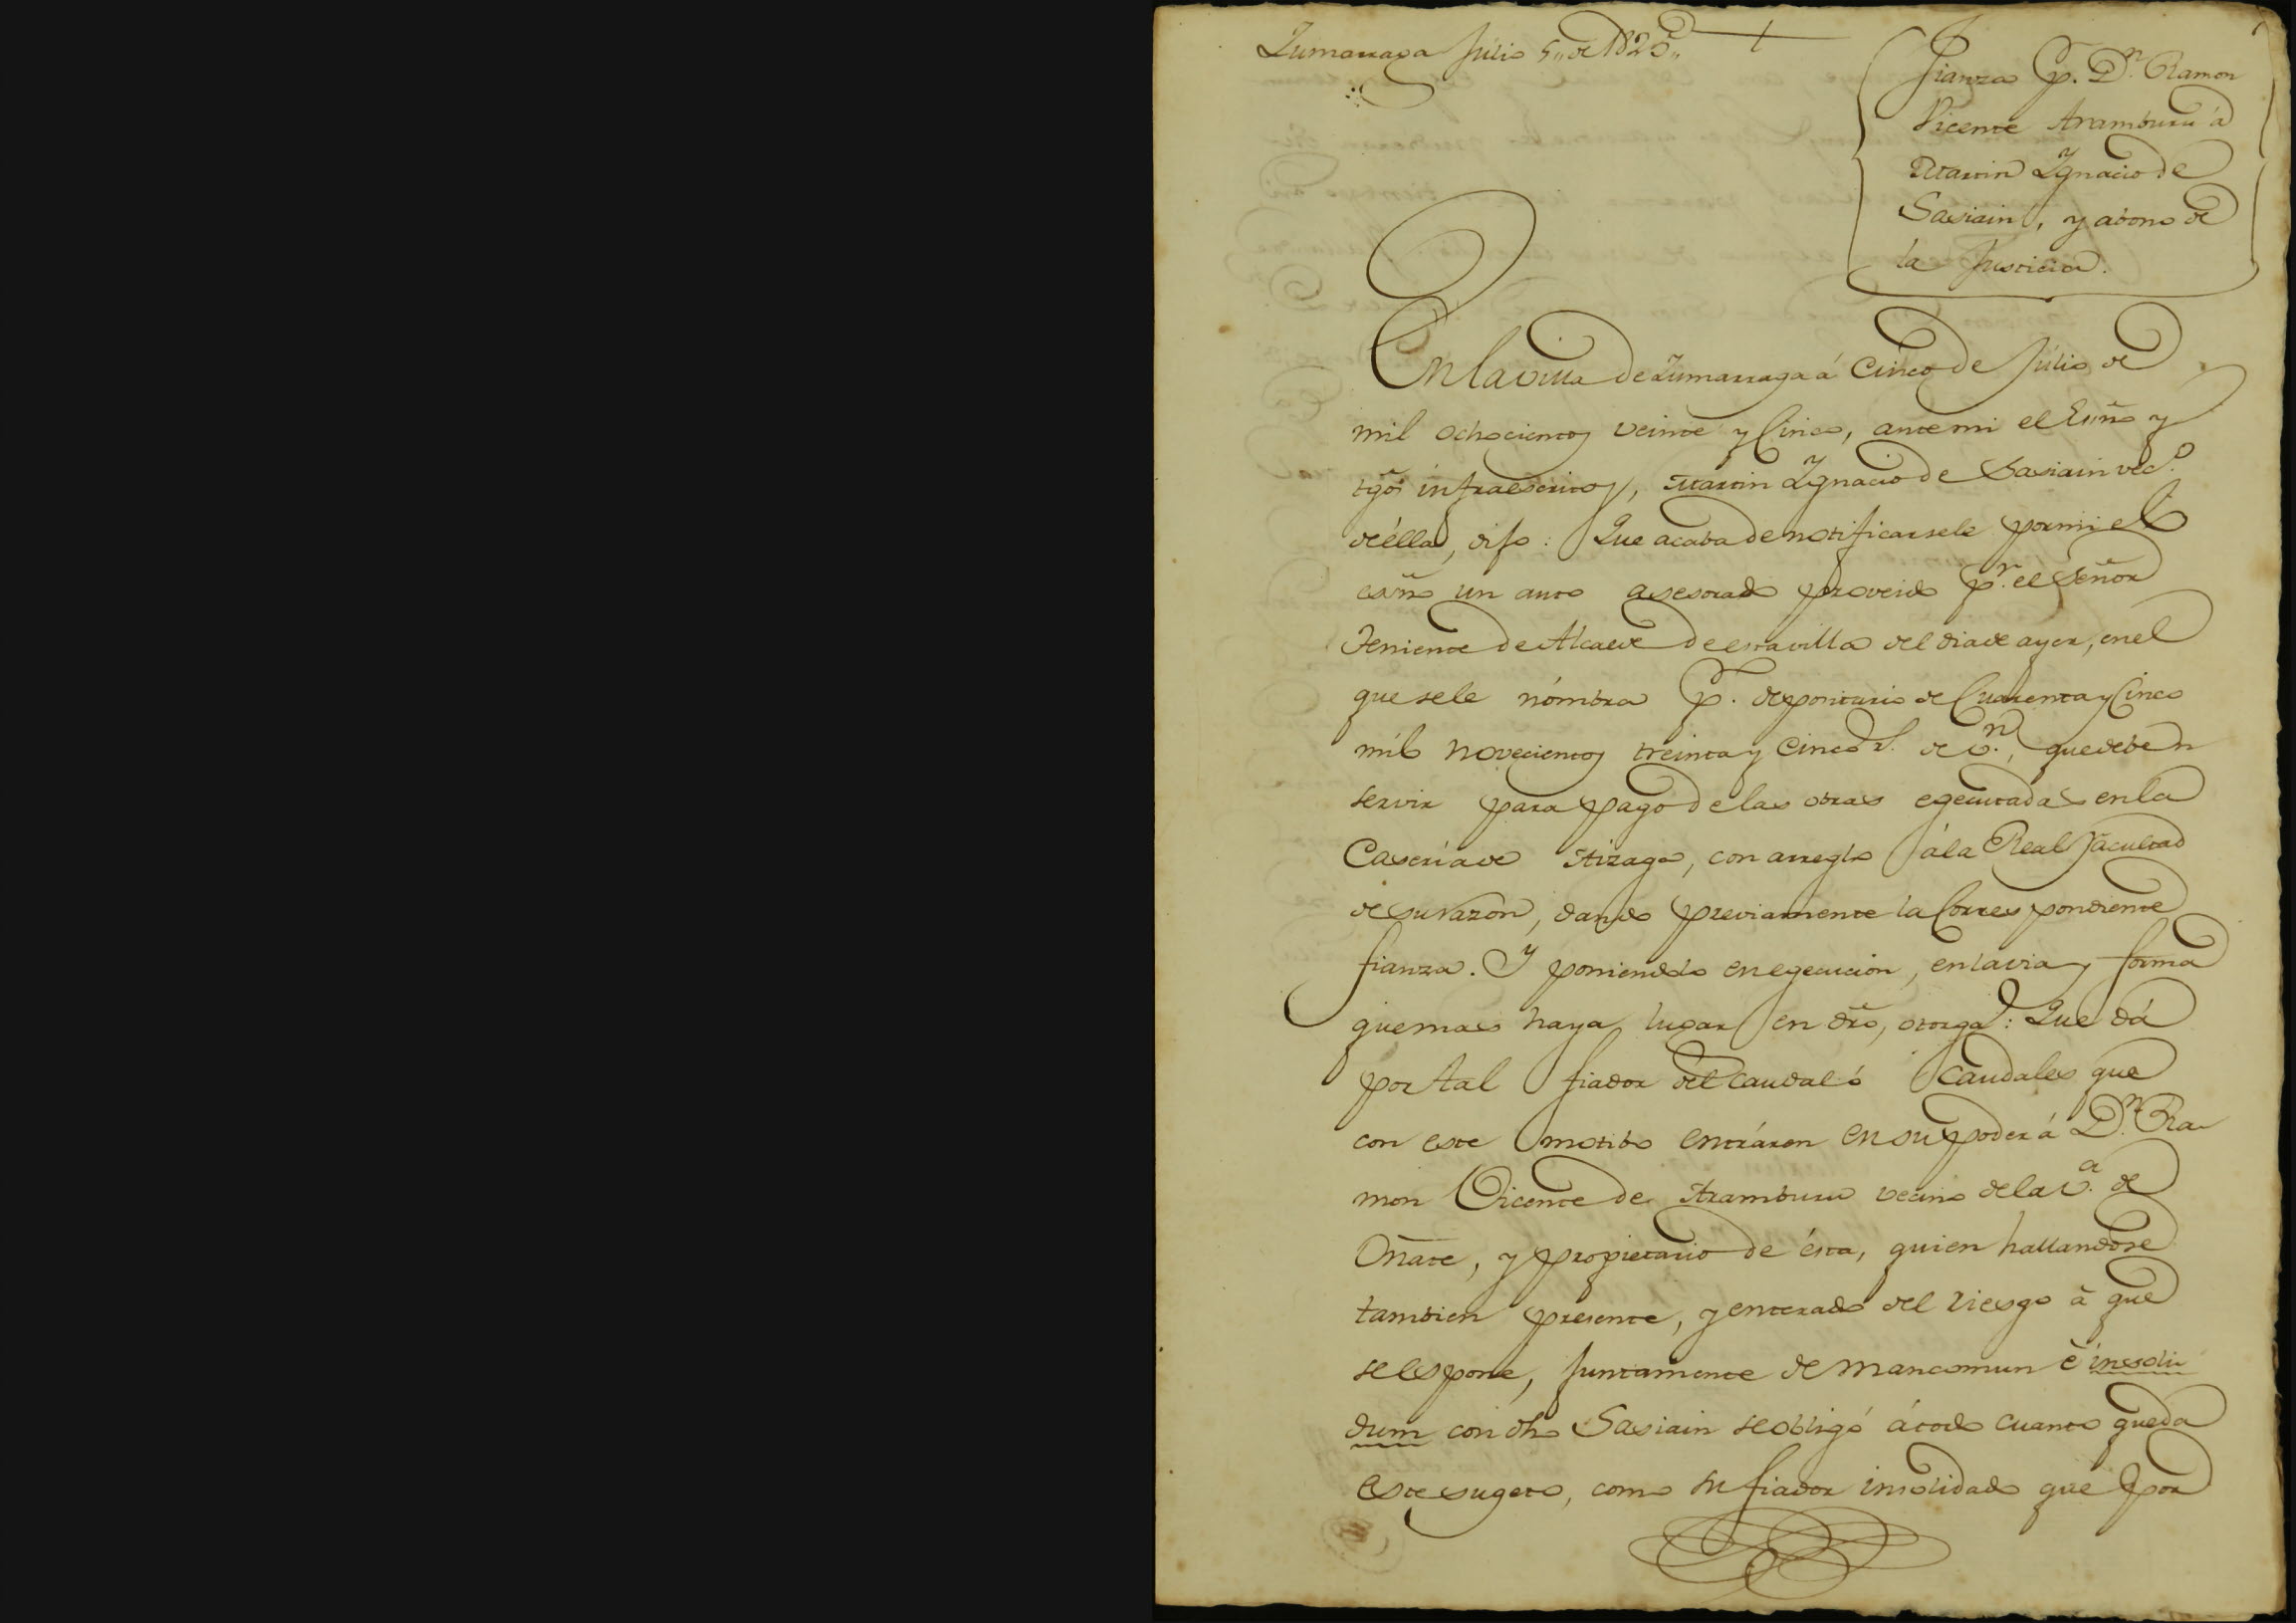 Zumarraga Julio 5,, de 1825,,
Fianza p. Dn. Ramon
Vicente Aramburu á
Martin Ygnacio de
Sasiain, y abono de
la Justicia.
En la villa de Zumarraga á cinco de Júlio de
mil ochocientos veinte y Cinco, ante mi el Essño y
tgos infraescritos, Martin Ygnacio de Sasiain vec.o
de élla, dijo: Que acaba de notificarsele por mi el
essño un auto asesorado proveido p.r el Señor
Teniente de Alcalde de esta villa del dia de ayer, en el
que se le nómbra p. depositario de Cuarenta y Cinco
mil novecientos treinta y cinco r.s de v.n, que deben
servir para pago de las obras egecutadas en la
Caseria de Aizaga, con arreglo á la Real facultad
de su razon, dando previamente la Correspondiente
fianza. Y poniendolo en egecucion, en la via y forma
que mas haya lugar en dro, otorga: Que dá
por tal fiador del caudal ó caudales que
con este motibo entráren en su poder á D.n Ra-
mon Vicente de Aramburu vecino de la v.a de
Oñate, y propietario de ésta, quien hallandose
tambien presente, y enterado del riesgo á que
se espone, juntamente de mancomun é insoli
dum con dho Sasiain se obligó á todo cuanto queda
este sugeto, como su fiador insolidado que por